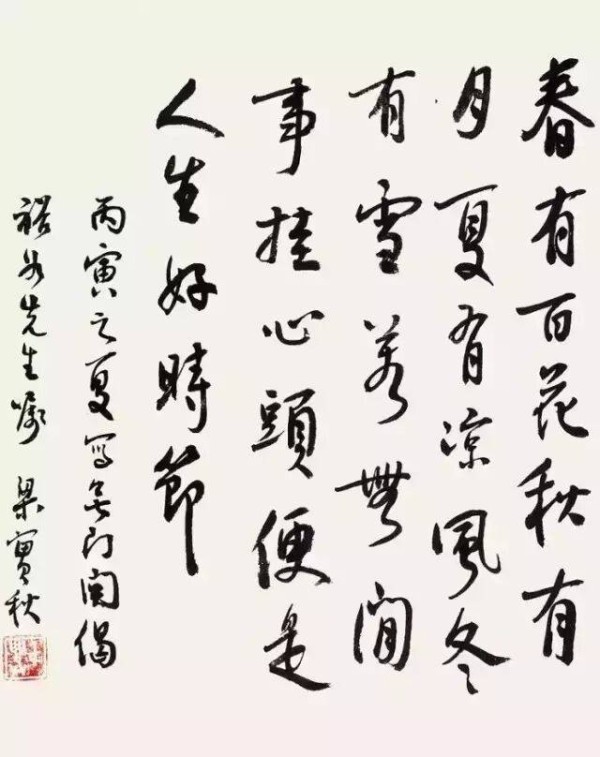 春有百花秋有
月夏有涼風冬
有雪若無閒
事挂心頭便是
人生好時節
丙寅之夏寫無門関偈
先生嘱 梁實秋